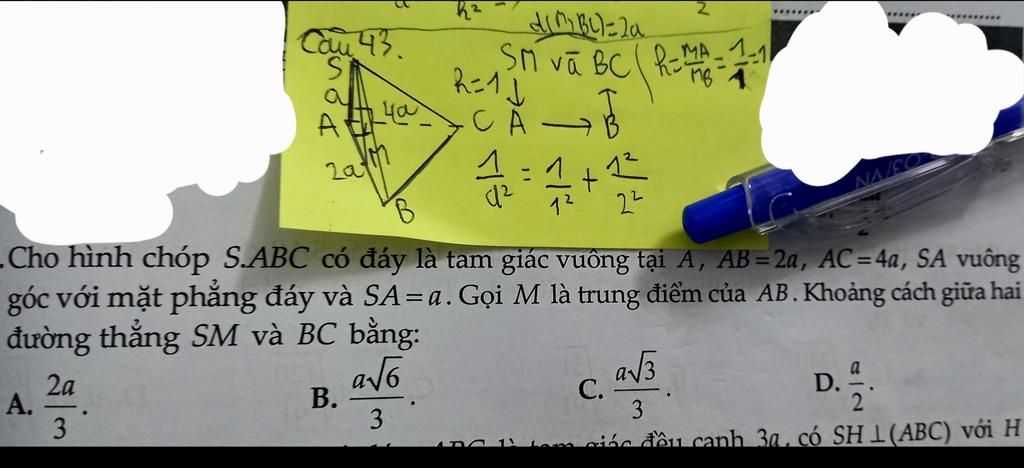 d(M,BC)=2a
2
Câu 43.
SM và BC
k=MA/MB=1/1=1
k=1
S
a
A
4a
C
A → B
2a
M
B
1/d² = 1/1² + 1²/2²
.Cho hình chóp S.ABC có đáy là tam giác vuông tại A, AB=2a, AC=4a, SA vuông
góc với mặt phẳng đáy và SA=a. Gọi M là trung điểm của AB. Khoảng cách giữa hai
đường thẳng SM và BC bằng:
A. 2a/3. B. a√6/3. C. a√3/3. D. a/2.
tam giác đều cạnh 3a, có SH⊥(ABC) với H